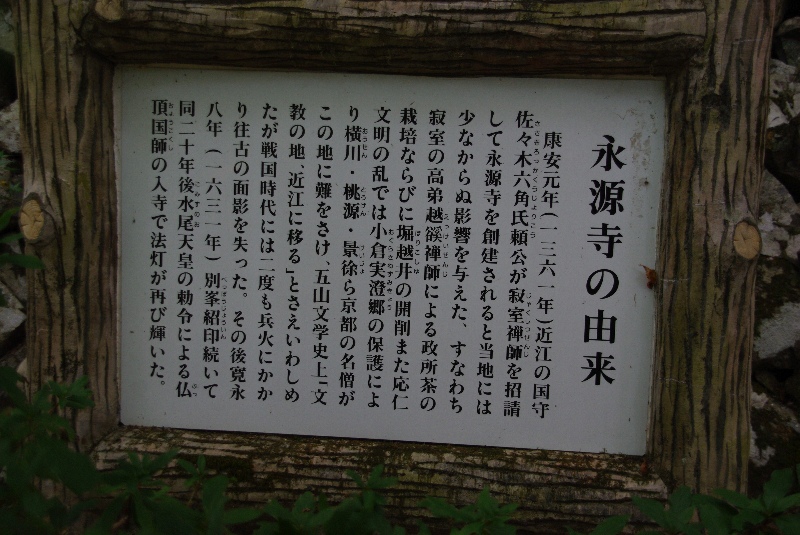 永源寺の由来
康安元年(一三六一年)近江の国守
佐々木六角氏頼公が寂室禅師を招請
して永源寺を創建されると当地には
少なからぬ影響を与えた、すなわち
寂室の高弟越谿禅師による政所茶の
栽培ならびに堀越井の開削また応仁
文明の乱では小倉実澄郷の保護によ
り横川・桃源・景徐ら京都の名僧が
この地に難をさけ、五山文学史上「文
教の地、近江に移る」とさえいわしめ
たが戦国時代には二度も兵火にかか
り往古の面影を失った。その後寛永
八年(一六三一年)別峯紹印続いて
同二十年後水尾天皇の勅令による仏
頂国師の入寺で法灯が再び輝いた。